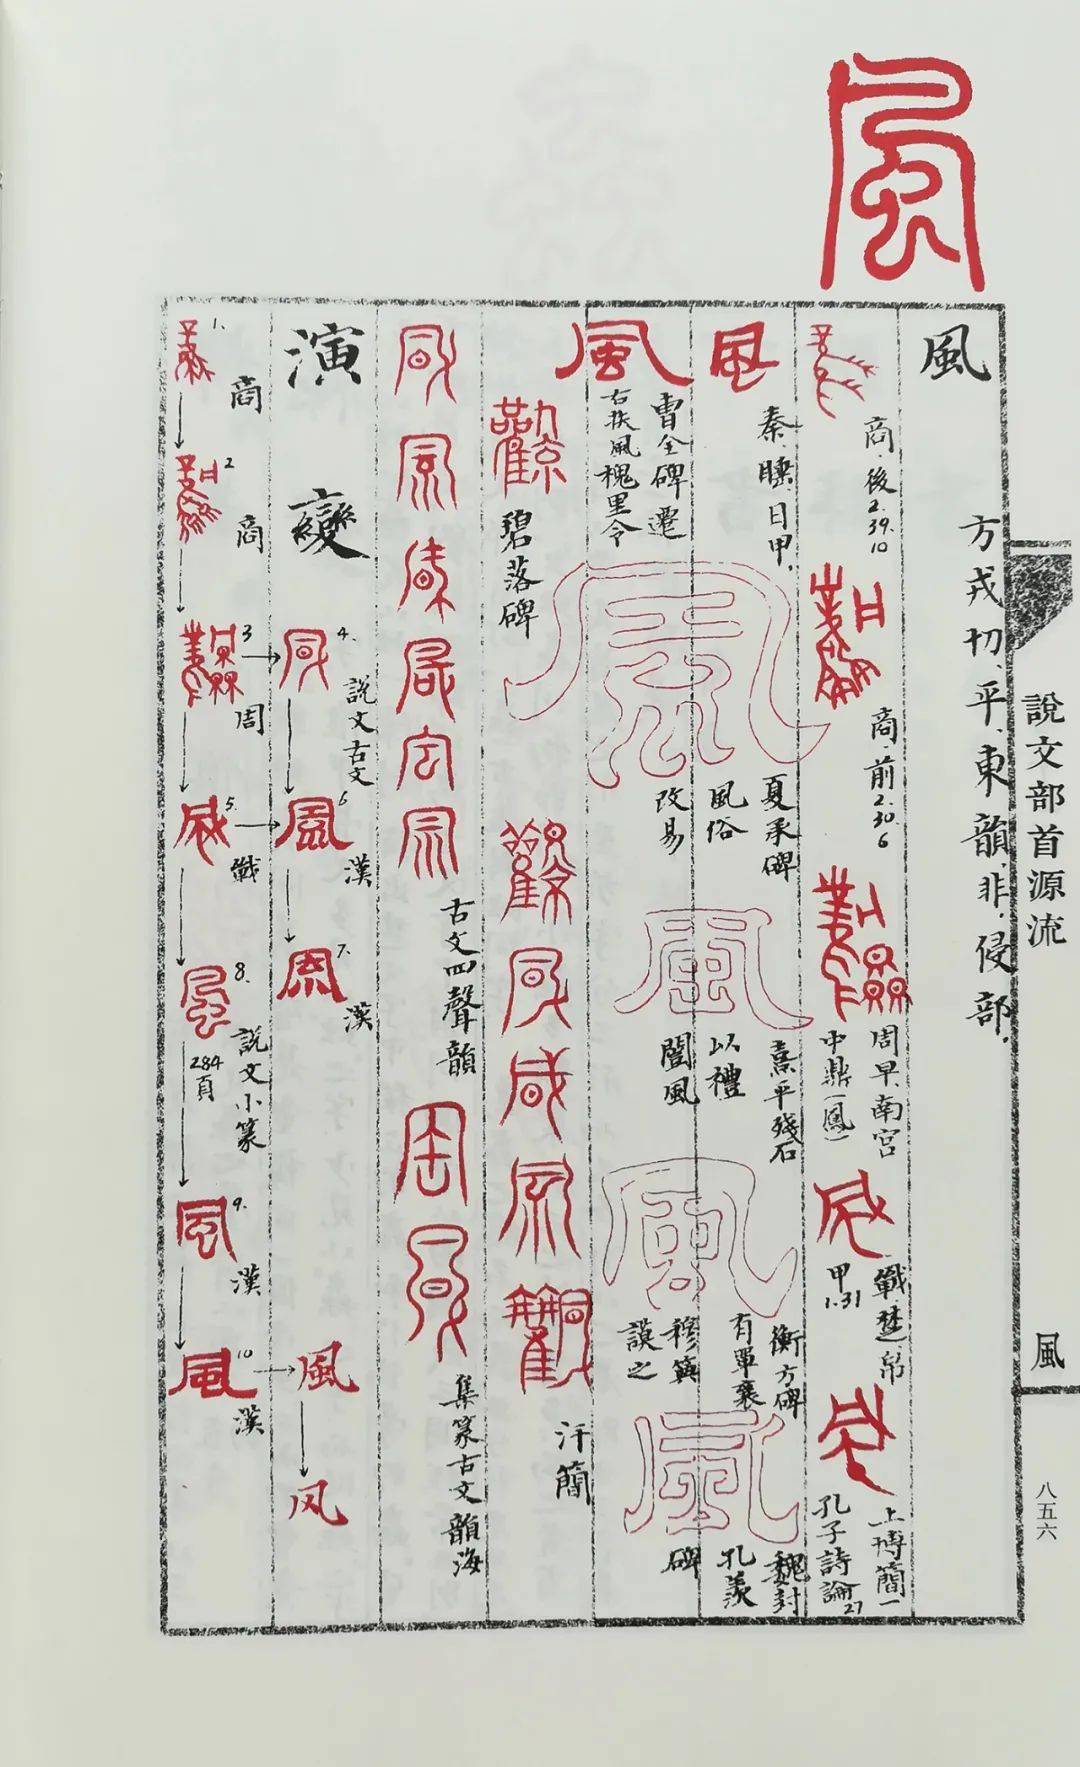 風
說文部首源流
風
八五六
風
方戎切、平、東韻、非、侵部、
商、後2.39.10
商、前2.30.6
周早、南宮
中鼎(鳳)
戰、楚、帛
甲1.31
上博簡一
孔子詩論27
風
秦、睡、日甲、
夏承碑
風俗
改易
熹平殘石
以禮
闓風
衡方碑
有單襄
穆典
謨之
魏封
孔羨
碑
風
曹全碑、遷
右扶風槐里令
碧落碑
汗簡
古文四聲韻
集篆古文韻海
演變
1. 商
2 商
3 周
4. 說文古文
5. 戰
6 漢
7. 漢
8. 說文小篆
284頁
9. 漢
10 漢
風
风